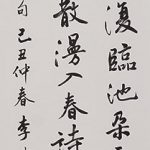 復臨池朵
散漫入春詩
句己丑仲春李